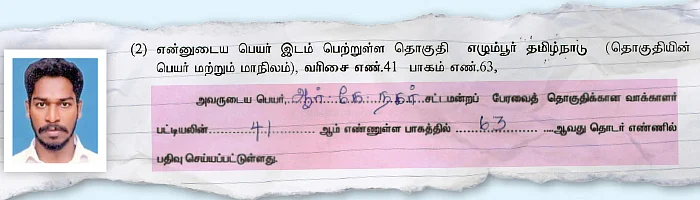 (2) என்னுடைய பெயர் இடம் பெற்றுள்ள தொகுதி எழும்பூர் தமிழ்நாடு (தொகுதியின்
பெயர் மற்றும் மாநிலம்), வரிசை எண்.41 பாகம் எண்.63,
அவருடைய பெயர்,..ஆர்...கே...நகர் சட்டமன்றப் பேரவைத் தொகுதிக்கான வாக்காளர்
பட்டியலின் .......41............ ஆம் எண்ணுள்ள பாகத்தில் .......63............ ....ஆவது தொடர் எண்ணில்
பதிவு செய்யப்பட்டுள்ளது.